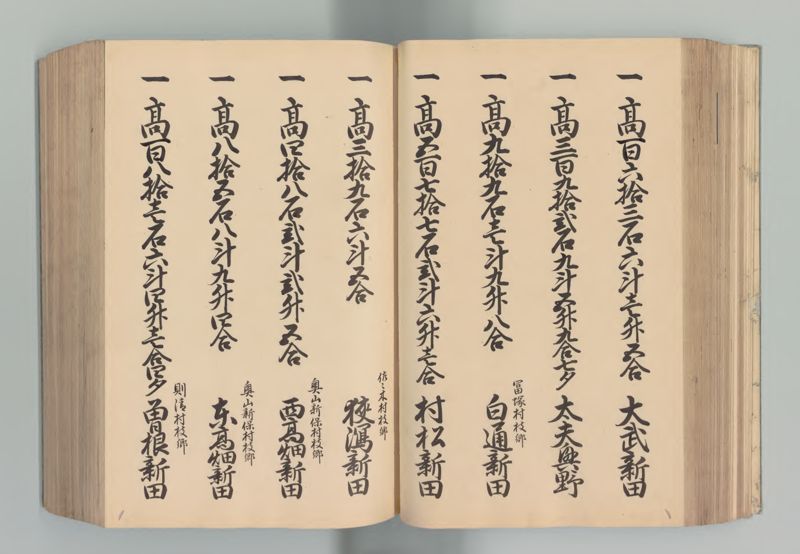 一 高百六拾三石六斗壱升五合 大武新田
一 高三百九拾弐石九斗五升九合七夕 太夫興野
冨塚村枝郷
一 高九拾九石壱斗九升八合 白通新田
一 高五百七拾七石弐斗六升壱合 村松新田
佐々木村枝郷
一 高三拾九石六斗五合 狭潟新田
奥山新保村枝郷
一 高四拾八石弐斗弐升五合 西高畑新田
奥山新保村枝郷
一 高八拾五石八斗九升四合 東高畑新田
則清村枝郷
一 高百八拾壱石六斗四升壱合四夕 曽根新田